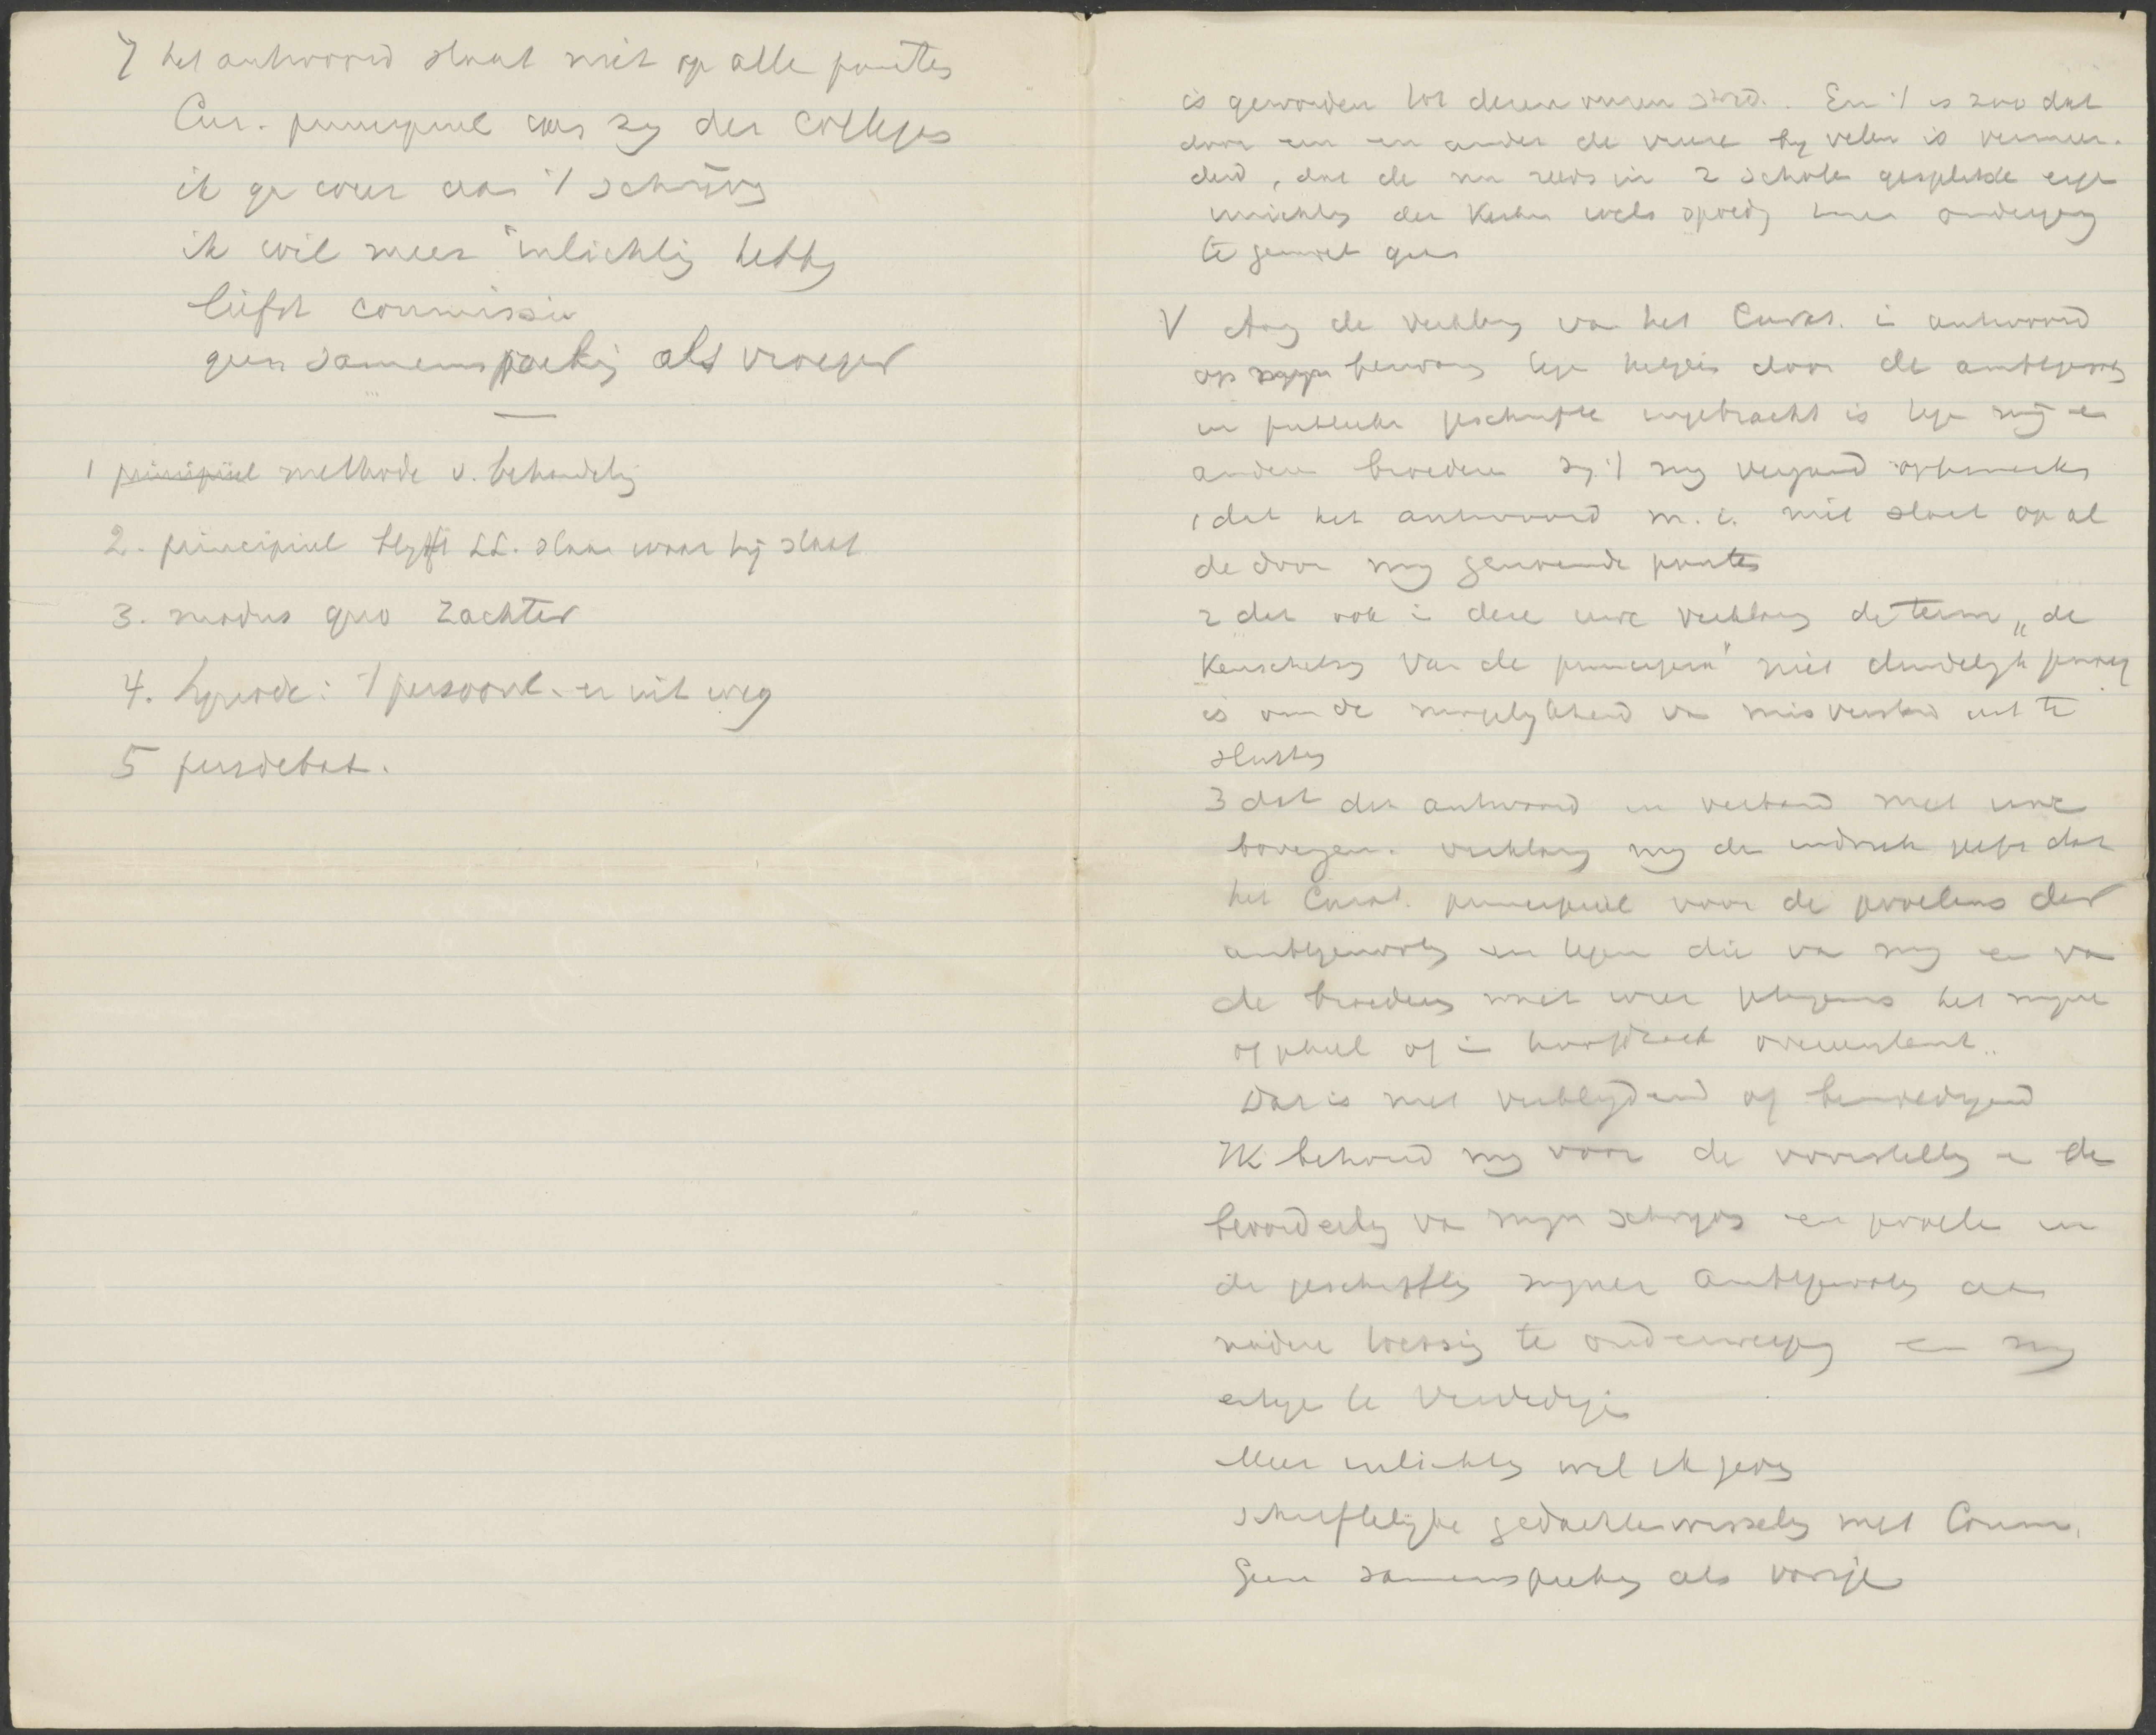 7 het antwoord slaat niet op alle punten
Cur. principieel aan zij der colleges
ik ga weer aan 't schrijven
ik wil meer inlichting hebben
liefst commissie
geen samenspreking als vroeger
1 principiëel methode v. behandeling
2. principieel blijft LL. staan waar hij staat
3. modus quo zachter
4. Synode: 't persoonl. er uit weg
5 persdebat.
is geworden tot En 't is zoo dat
door een en ander de vrees bij velen is vermeer-
derd, dat de nu reeds in 2 scholen gesplitste
der Kerken spoedig haar ondergang
te gemoet gaat
V Aang de verklaring van het Curat. in antwoord
op bezwaren door de ambtgenoten
in publieke geschriften ingebracht is tegen mij en
andere broederen zij 't mij vergund op te merken
1 dat het antwoord m.i. niet slaat op al
de door mij genoemde punten
2 dat ook in deze uwe verklaring de term „de
van de principia" niet duidelijk genoeg
is om de mogelijkheid van misverstand uit te
sluiten
3 dat dit antwoord in verband met uwe
bovengen. verklaring mij de indruk geeft dat
het Curat. principieel voor de der
ambtgenooten en tegen die van mij en van
de broeders het mijne
of geheel of in hoofdzaak overeenstemt.
Dat is niet verblijdend of bemoedigend
Ik behoud mij voor de voorstelling en de
beoordeeling van mijn schrijven en in
de geschriften mijner ambtgenooten aan
nadere toetsing te onderwerpen en mij
te verdedigen
Meer inlichting wil ik geven
schriftelijke gedachtenwisseling met Comm.
Geen samenspreking als vorige